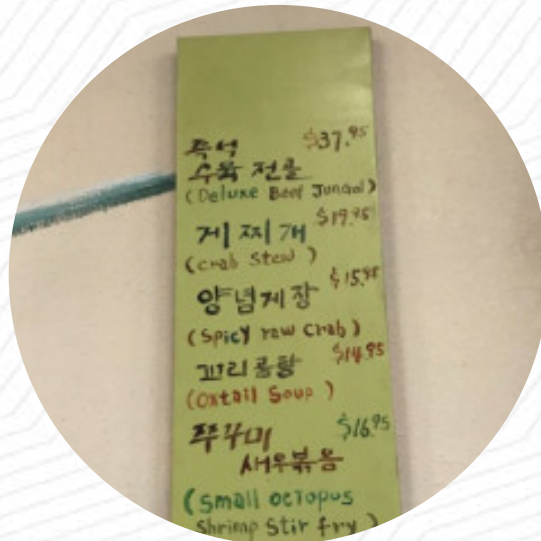 즉석 $37.95
수육 전골
(Deluxe Beef Jungol)
게찌개 $19.95
(crab Stew)
양념게장 $15.95
(Spicy raw Crab)
꼬리곰탕 $14.95
(Oxtail Soup)
쭈꾸미 $16.95
새우볶음
(Small octopus
Shrimp Stir fry)